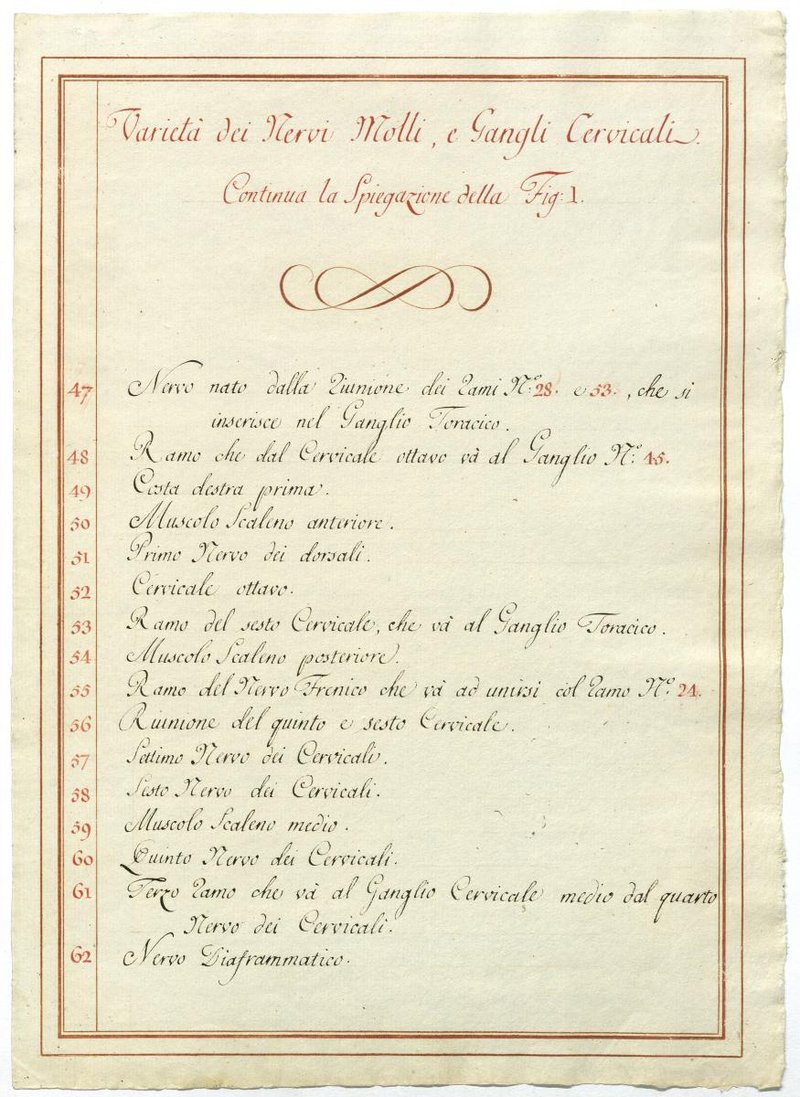 Varietà dei Nervi Molli, e Gangli Cervicali.
Continua la Spiegazione della Fig: 1.
47 Nervo nato dalla riunione dei rami N.º 28. e 53., che si
inserisce nel Ganglio Toracico.
48 Ramo che dal Cervicale ottavo và al Ganglio N.º 45.
49 Costa destra prima.
50 Muscolo Scaleno anteriore.
51 Primo Nervo dei dorsali.
52 Cervicale ottavo.
53 Ramo del sesto Cervicale, che và al Ganglio Toracico.
54 Muscolo Scaleno posteriore.
55 Ramo del Nervo Frenico che và ad unirsi col ramo N.º 24.
56 Riunione del quinto e sesto Cervicale.
57 Settimo Nervo dei Cervicali.
58 Sesto Nervo dei Cervicali.
59 Muscolo Scaleno medio.
60 Quinto Nervo dei Cervicali.
61 Terzo ramo che và al Ganglio Cervicale medio dal quarto
Nervo dei Cervicali.
62 Nervo Diaframmatico.